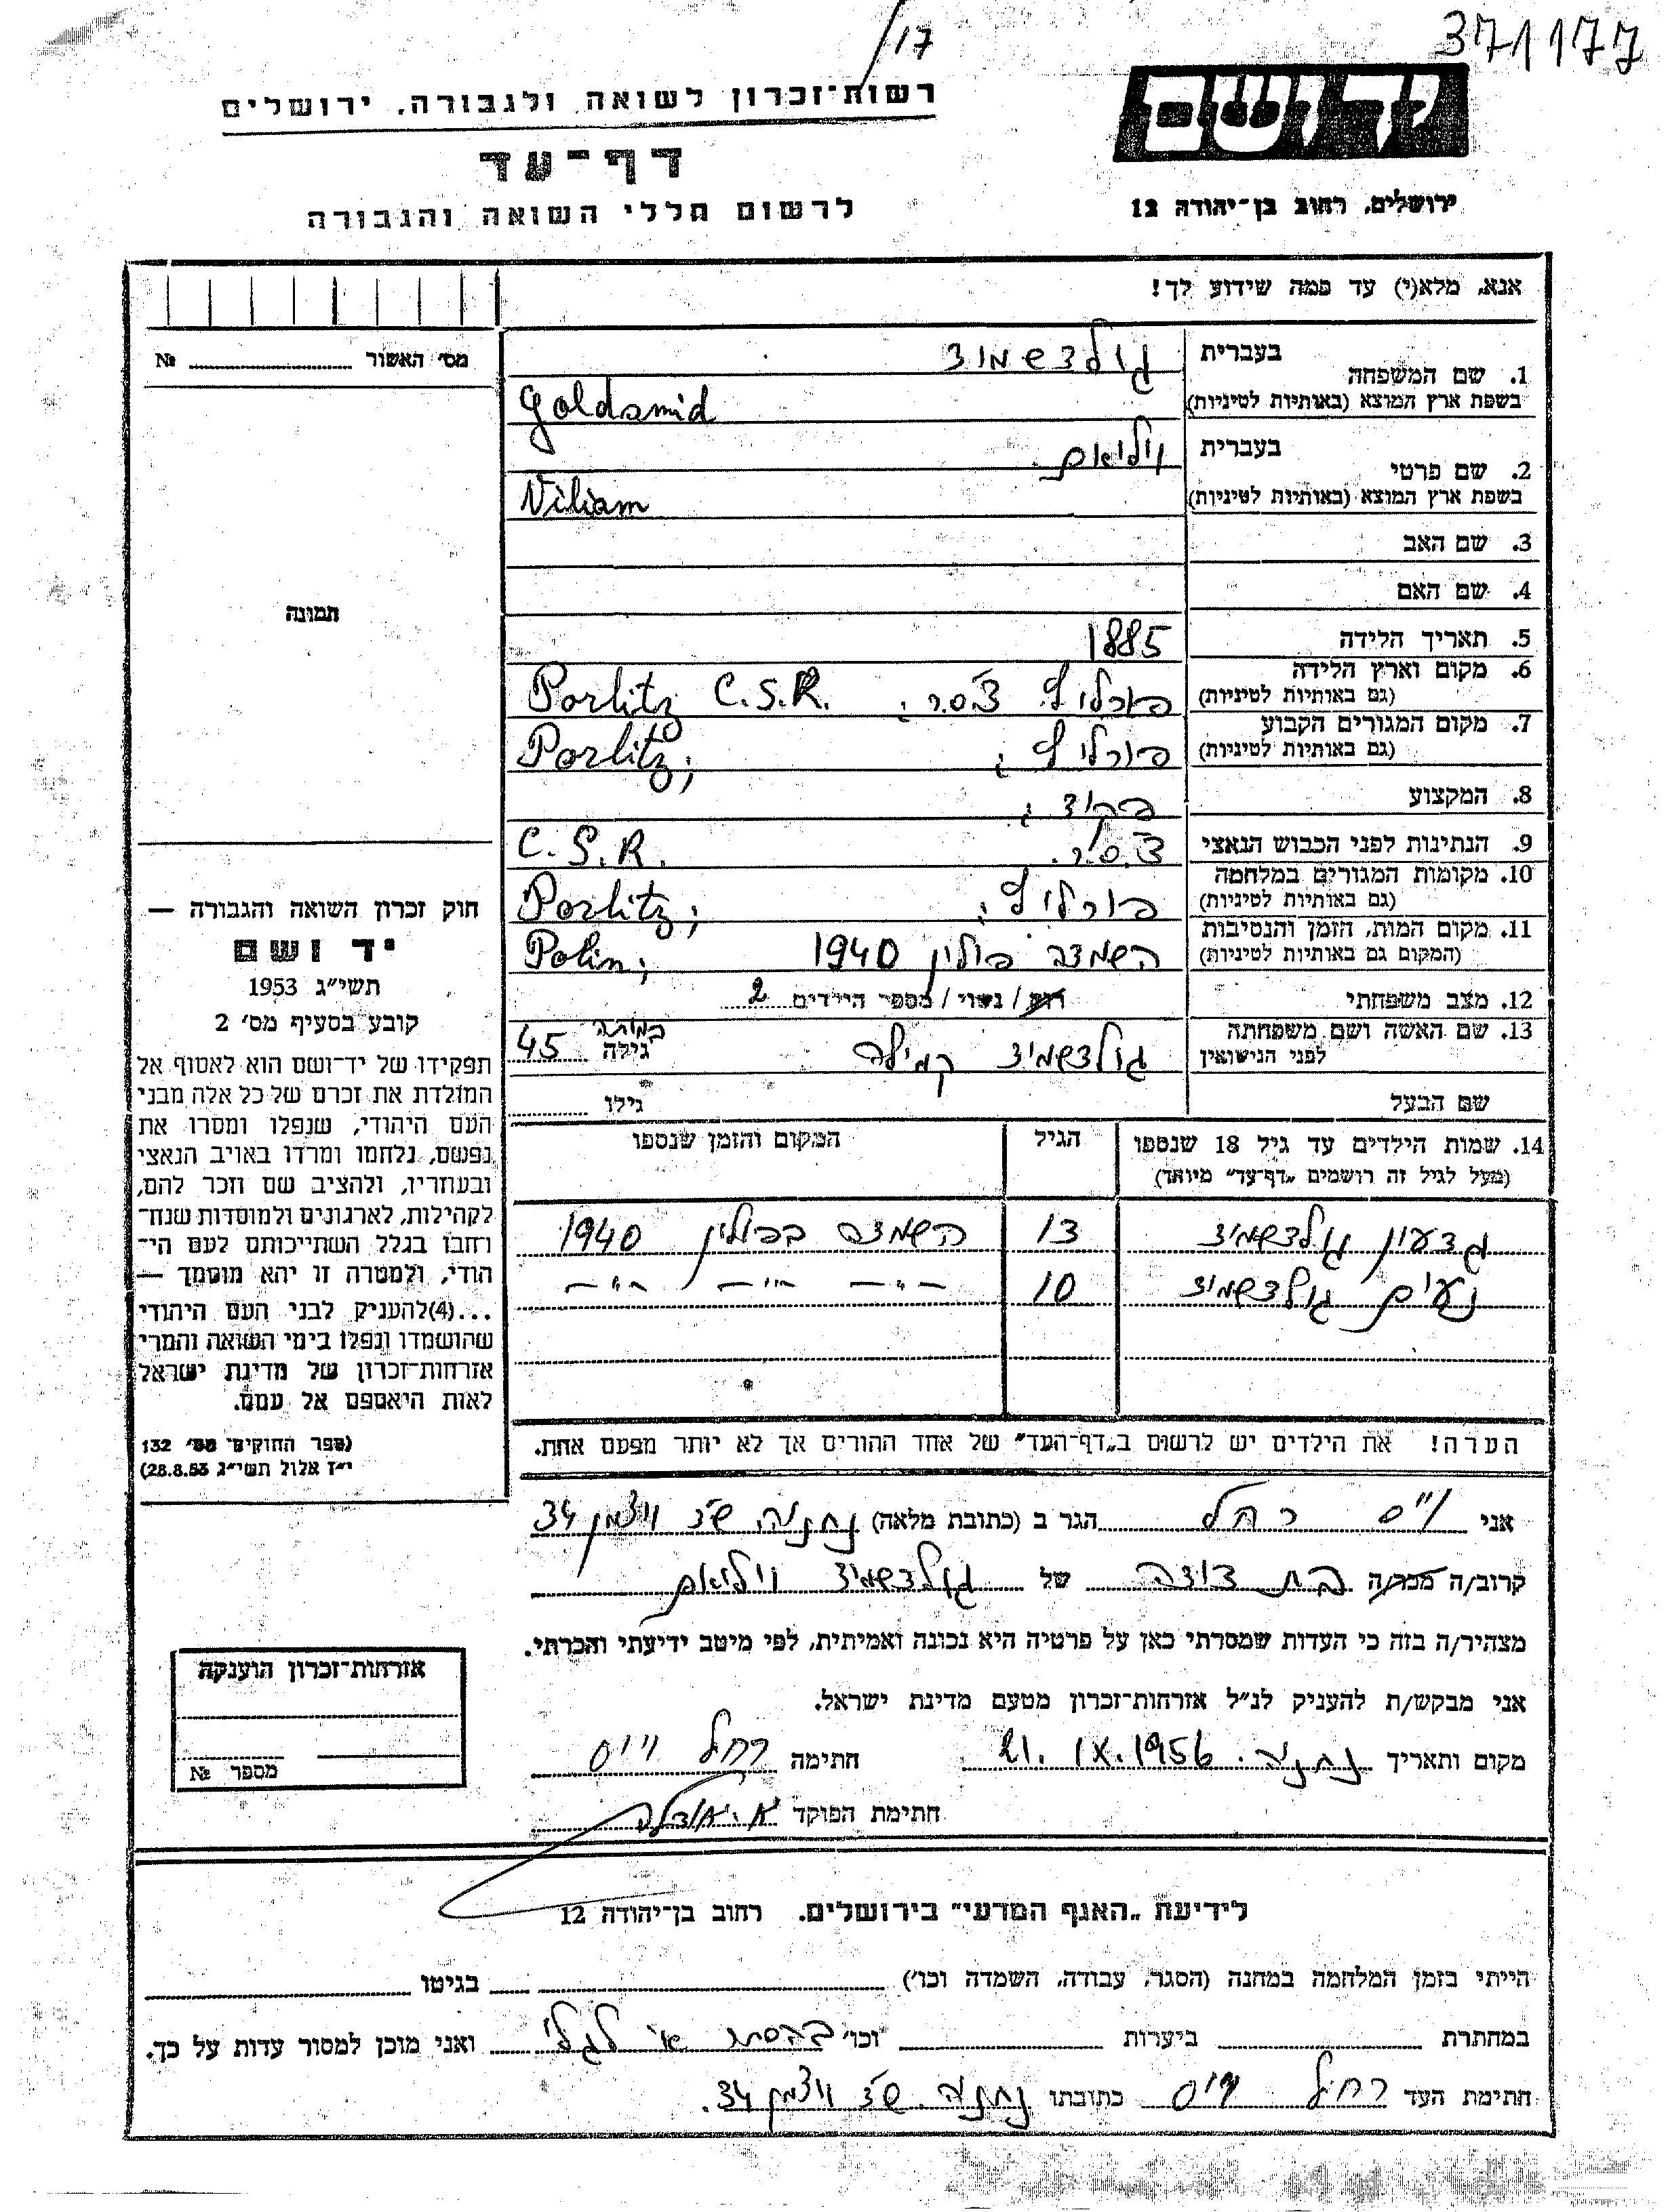 17/
371177
רשות־זכרון לשואה ולגבורה, ירושלים
דף־עד
לרשום חללי השואה והגבורה
יד ושם
ירושלים, רחוב בן־יהודה 12
אנא, מלא(י) עד כמה שידוע לך!
מס׳ האשור № 
1. שם המשפחה בעברית גולדשמיד
בשפת ארץ המוצא (באותיות לטיניות) Goldsmid
2. שם פרטי בעברית ויליאם
בשפת ארץ המוצא (באותיות לטיניות) Viliam
3. שם האב
4. שם האם
תמונה
5. תאריך הלידה 1885
6. מקום וארץ הלידה (גם באותיות לטיניות) פורליץ צ.ס.ר. Porlitz C.S.R.
7. מקום המגורים הקבוע (גם באותיות לטיניות) פורליץ; Porlitz;
8. המקצוע פקיד;
9. הנתינות לפני הכבוש הנאצי צ.ס.ר. C.S.R.
10. מקומות המגורים במלחמה (גם באותיות לטיניות) פורליץ; Porlitz;
11. מקום המות, הזמן והנסיבות (המקום גם באותיות לטיניות) השמדה פולין 1940 Polin;
12. מצב משפחתי רוק / נשוי / מספר הילדים 2
13. שם האשה ושם משפחתה לפני הנישואין גולדשמיד קמילה גילה במותה 45
שם הבעל גילו
14. שמות הילדים עד גיל 18 שנספו הגיל המקום והזמן שנספו
(מעל לגיל זה רושמים "דף־עד" מיוחד)
גדעון גולדשמיד 13 השמדה בפולין 1940
נעים גולדשמיד 10 –״– –״– –״–
הערה! את הילדים יש לרשום ב"דף־העד" של אחד ההורים אך לא יותר מפעם אחת.
חוק זכרון השואה והגבורה —
יד ושם
תשי״ג 1953
קובע בסעיף מס׳ 2
תפקידו של יד־ושם הוא לאסוף אל
המולדת את זכרם של כל אלה מבני
העם היהודי, שנפלו ומסרו את
נפשם, נלחמו ומרדו באויב הנאצי
ובעוזריו, ולהציב שם וזכר להם,
לקהילות, לארגונים ולמוסדות שנח־
רבו בגלל השתייכותם לעם הי־
הודי, ולמטרה זו יהא מוסמך —
...(4) להעניק לבני העם היהודי
שהושמדו ונפלו בימי השואה והמרי
אזרחות־זכרון של מדינת ישראל
לאות היאספם אל עמם.
(ספר החוקים מס׳ 132
י״ז אלול תשי״ג 28.8.53)
אני וייס רחל הגר ב (כתובת מלאה) נתניה, ש״צ ויצמן 34
קרוב/ה מכר/ה בת דודה של גולדשמיד ויליאם
מצהיר/ה בזה כי העדות שמסרתי כאן על פרטיה היא נכונה ואמיתית, לפי מיטב ידיעתי והכרתי.
אני מבקש/ת להעניק לנ״ל אזרחות־זכרון מטעם מדינת ישראל.
מקום ותאריך נתניה. 21. IX. 1956 חתימה רחל וייס
חתימת הפוקד
אזרחות־זכרון הוענקה
מספר №
לידיעת "האגף המדעי" בירושלים. רחוב בן־יהודה 12
הייתי בזמן המלחמה במחנה (הסגר, עבודה, השמדה וכו׳) בגיטו
במחתרת ביערות וכו׳ ואני מוכן למסור עדות על כך.
חתימת העד רחל וייס כתובתו נתניה. ש״צ ויצמן 34.